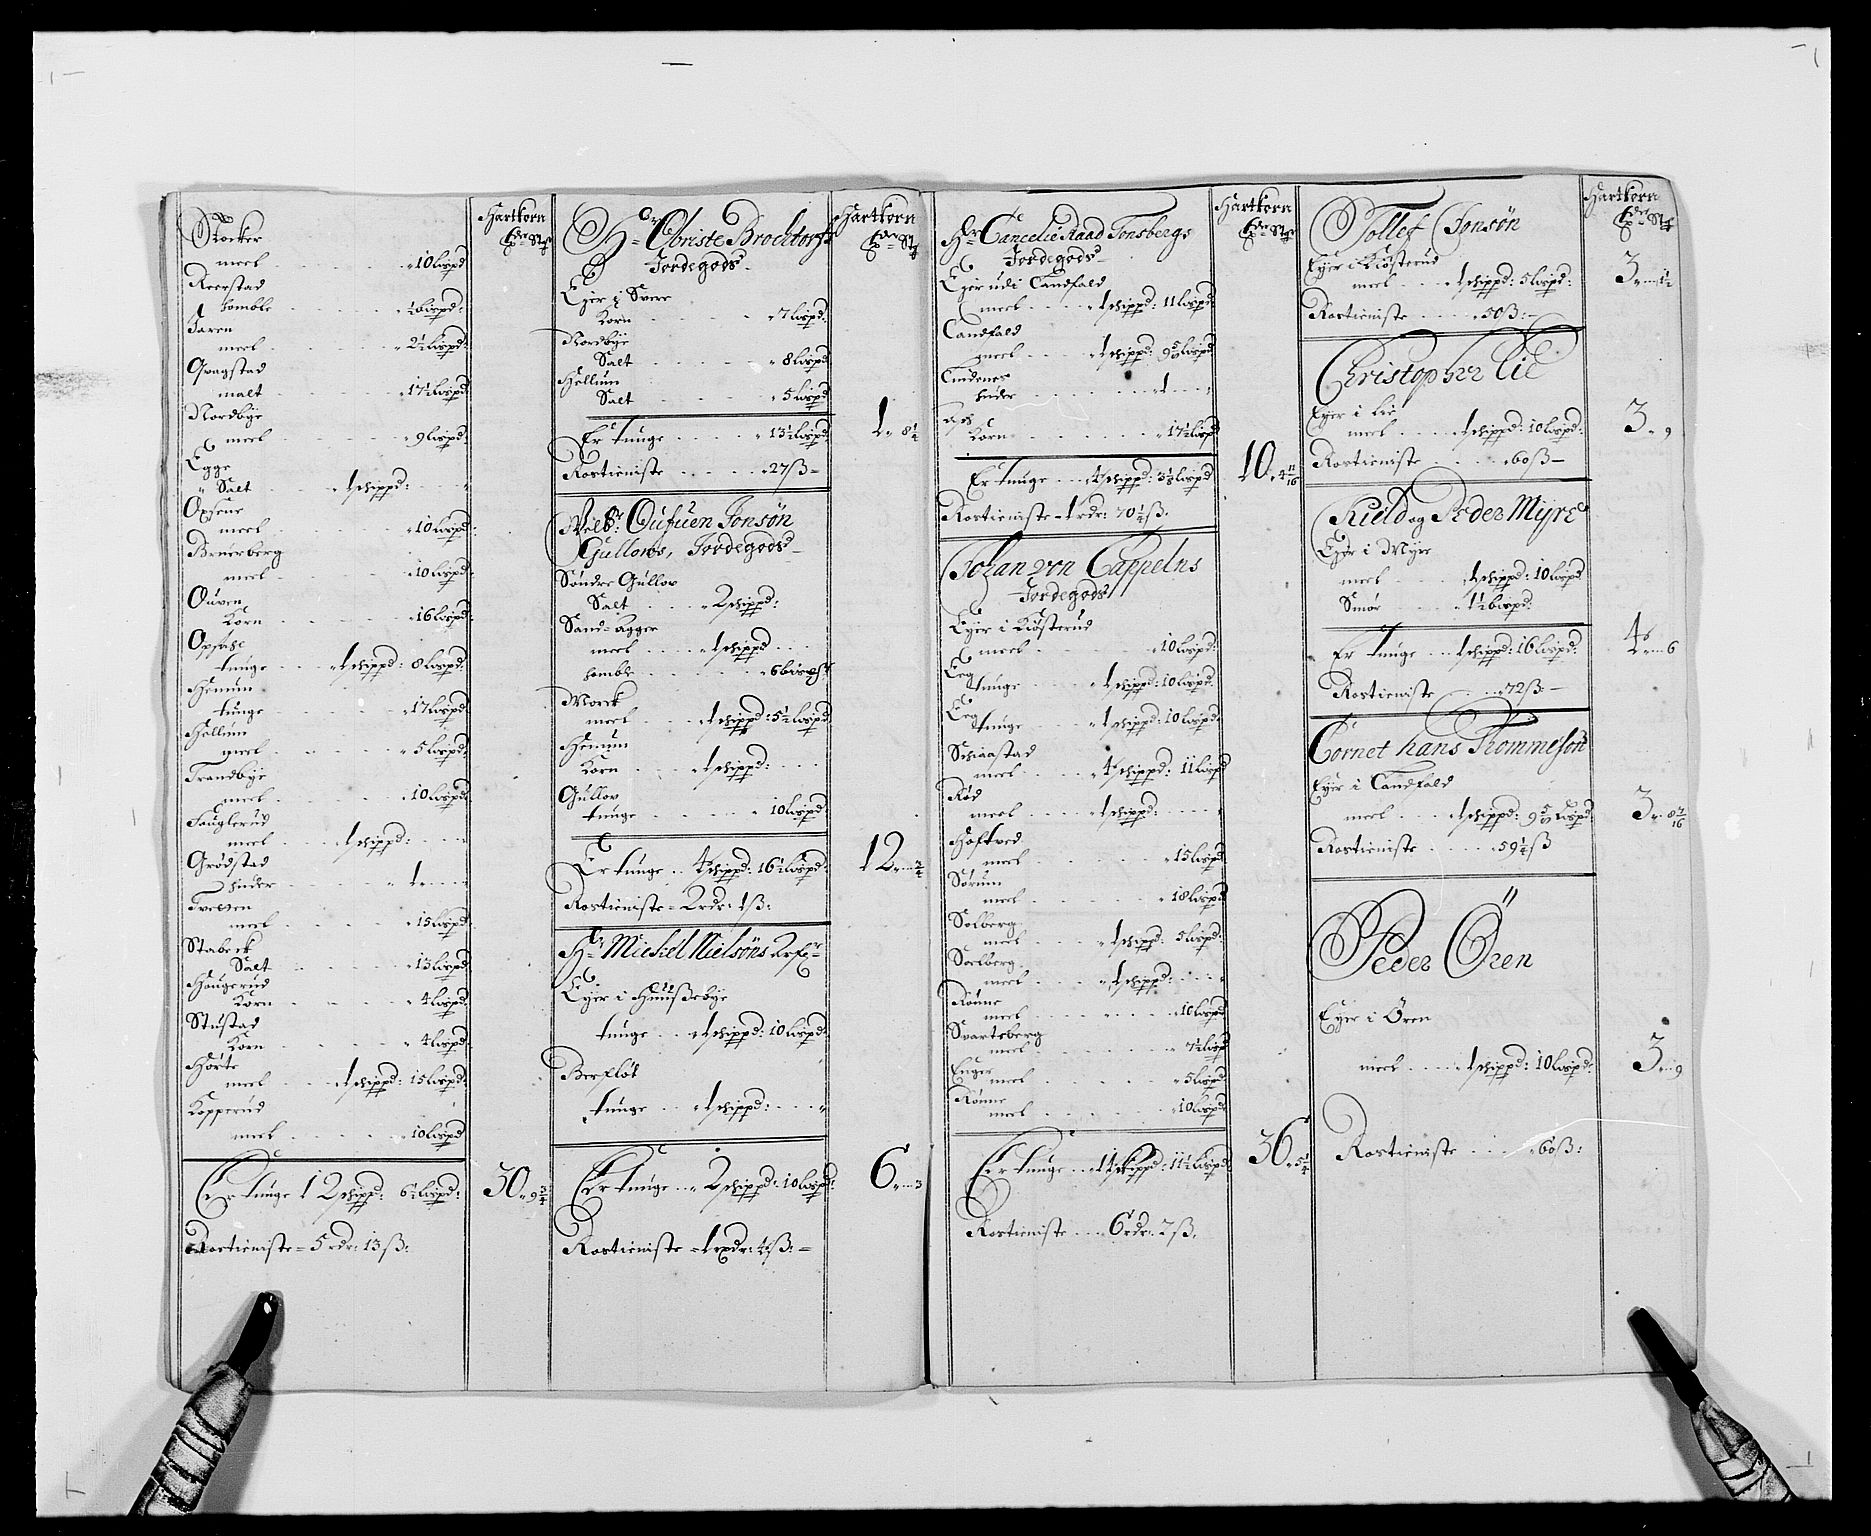 Hartkorn
Stocker
meel 10 lispd
Reerstad
homble ½ bispd:
Jaren
meel 2½ lispd:
Qvagstad
malt 17½ lispd:
Nordbye
meel 9 lispd:
Egge
Salt 1 schippd:
Opsene
meel 10 lispd:
Bruerberg
meel 10 lispd:
Ouven
Korn 16 lispd:
Opsahl
tunge 1 schippd: 8 lispd:
Hemum
tunge 17 lispd:
Hellum
meel 5 lispd:
Trandbye
meel 10 lispd:
Fauglerud
meel 1 schippd:
Grødstad
huder 1
Tvetten
meel 15 lispd
Stabeck
Salt 13 lispd
Haugerud
Korn 4 lispd:
Stustad
Korn 4 lispd:
Hørte
meel 1 schippd: 15 lispd:
Kopperud
meel 10 lispd
Er tunge 12 schippd: 6½ lispd: 30 9¾
Rostieniste 5 rdr: 13 ß:
Hartkorn
Hr Obriste Brocktorfs
Jordegods
Ejer i Svere
Korn 7 lispd:
Nordbye
Salt 8 lispd
Hellum
Salt 5 lispd
Er tunge 13½ lispd: 1 8½
Rostieniste 27 ß
Welb: Oufuen Jonsøn
Gullows, Jordegods
Søndre Gullov
Salt 2 schippd:
Sand-Agger
meel 1 schippd
homble 6
Morck
meel 1 schippd: 5½ lispd
Hemum
Korn 1 schippd:
Gullov
tunge 10 lispd
Er tunge 4 schippd: 16½ lispd: 12 ¾
Rostieniste 2 rdr: 1 ß:
Hr Mickel Nielsøns
Ejer i Huußebye
tunge 1 schippd: 10 lispd:
Berfløt
tunge 1 schippd:
Er tunge 2 schippd: 10 lispd: 6 3
Rostieniste 1 rdr: 4 ß:
Hartkorn
Hr Cancelie Raad Tonsbergs
Jordegods
Ejer udi Candfald
meel 1 schippd: 11 lispd
Candfald
meel 1 schippd: lispd
Lindenes
huder 1
Korn 17½ lispd
Er tunge 4 schippd: lispd 10 4 11/16
Rostieniste 1 rdr: 70¼ ß:
Johan von Cappelns
Jordegods
Ejer i Kiøsterud
meel 10 lispd:
Eeg
tunge 1 schippd: 10 lispd:
Eeg
tunge 1 schippd: 10 lispd:
Schiaastad
meel 1 schippd: 11 lispd
Rød
meel 1 schippd:
Hoftved
meel 15 lispd
Sørum
meel 18 lispd
Solberg
meel 1 schippd 5 lispd:
Soelberg
meel 1 schippd:
Rønne
meel 10 lispd
Svartsberg
meel 7½ lispd
Enger
meel 5 lispd
Rønne
meel 10 lispd
Er tunge 14 schippd: 11½ lispd: 36 5¼
Rostieniste 6 rdr: 2 ß.
Hartkorn
Tollef Jonsøn
Ejer i Kiøsterud
meel 1 schippd: 5 lispd: 3 1½
Rostieniste 50 ß:
Christopher Lie
Ejer i Lie
meel 1 schippd: 10 lispd: 3 9
Rostieniste 60 ß
Kield og Peder Myre
Ejer i Myre
meel 1 schippd: 10 lispd
Smør 1½ bispd:
Er tunge 1 schippd: 16 lispd: 4 6
Rostieniste 72 ß
Cornet hans Trommesøn
Ejer i Candfald
meel 1 schippd: lispd: 3 8
Rostieniste 59¼ ß
Peder Ören
Ejer i Ören
meel 1 schippd: 10 lispd: 3 9
Rostieniste 60 ß: